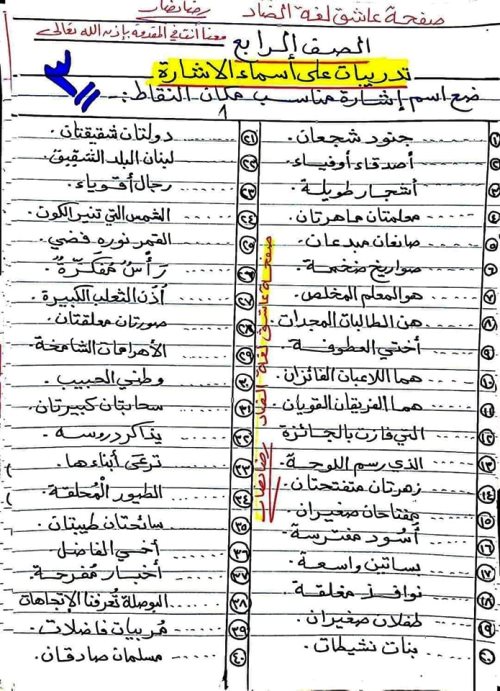 صفحة عاشق لغة الضاد رضا نصار
معنا أنت في المقدمة بإذن الله تعالى
الصف الرابع
تدريبات على أسماء الإشارة
٣
ضع اسم إشارة مناسب مكان النقاط:ـ
١ ...... جنود شجعان.
٢ ...... أصدقاء أوفياء.
٣ ...... أشجار طويلة.
٤ ...... معلمتان ماهرتان.
٥ ...... صانعان مبدعان.
٦ ...... صواريخ ضخمة.
٧ ...... هو المعلم المخلص.
٨ ...... هن الطالبات المجدات.
٩ ...... أختي العطوفة.
١٠ ...... هما اللاعبان الفائزان.
١١ ...... هما الفريقان القويان.
١٢ ...... التي فازت بالجائزة
١٣ ...... الذي رسم اللوحة.
١٤ ...... زهرتان متفتحتان.
١٥ ...... مفتاحان صغيران.
١٦ ...... أسود مفترسة.
١٧ ...... بساتين واسعة.
١٨ ...... نوافذ مغلقة.
١٩ ...... طفلان صغيران.
٢٠ ...... بنات نشيطات.
صفحة عاشق لغة الضاد رضا نصار
٢١ ...... دولتان شقيقتان.
٢٢ ...... لبنان البلد الشقيق.
٢٣ ...... رجال أقوياء.
٢٤ ...... الشمس التي تنير الكون.
٢٥ ...... القمر نوره فضي.
٢٦ ...... رأسٌ مفكرةٌ.
٢٧ ...... أذن الثعلب الكبيرة
٢٨ ...... صورتان معلقتان.
٢٩ ...... الأهرامات الشامخة
٣٠ ...... وطني الحبيب.
٣١ ...... سحابتان كبيرتان.
٣٢ ...... يذاكر دروسه.
٣٣ ...... ترعى أبناءها.
٣٤ ...... الطيور المُحلقة.
٣٥ ...... سائحتان طيبتان.
٣٦ ...... أخي الفاضل.
٣٧ ...... أخبار مُفرحة.
٣٨ ...... البوصلة تُعرفنا الإتجاهات
٣٩ ...... مُربيات فاضلات.
٤٠ ...... مسلمان صادقان.